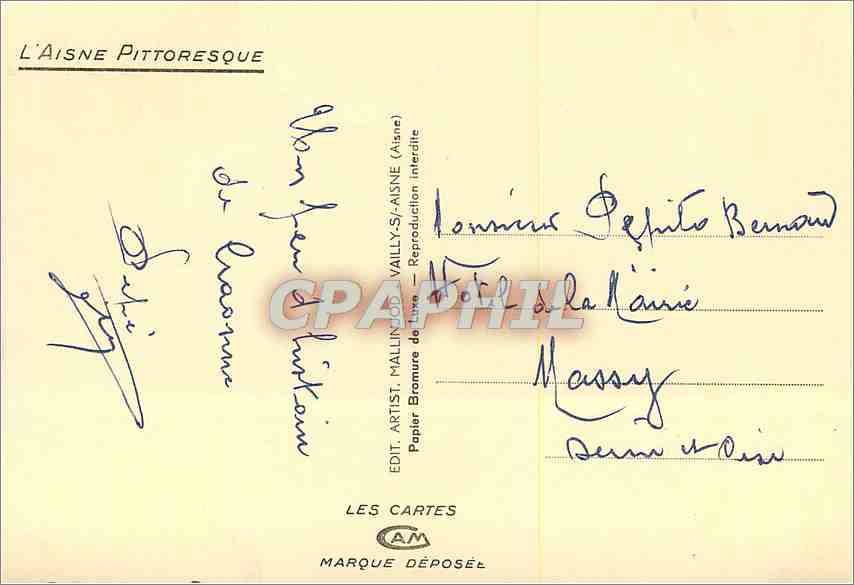 L'AISNE PITTORESQUE
Un peu d'histoire
de Craonne
Pepé
EDIT. ARTIST. MALLINJOD, VAILLY-S/-AISNE (Aisne)
Papier Bromure de Luxe — Reproduction interdite
Monsieur Pepito Bernard
Hôtel de la Mairie
Massy
Seine et Oise
CPAPHIL
LES CARTES
CAM
MARQUE DÉPOSÉE